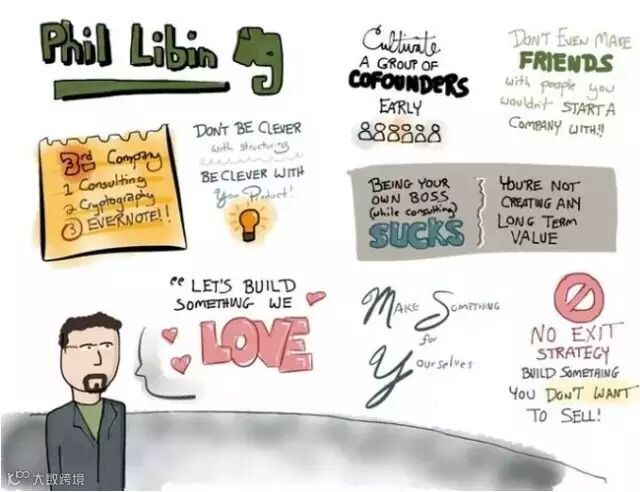 Phil Libin
3rd Company
1 Consulting
2 Cryptography
3 EVERNOTE!!
DON'T BE CLEVER
with structuring
BE CLEVER WITH
Your Product!
Cultivate
A GROUP OF
COFOUNDERS
EARLY
DON'T EVEN MAKE
FRIENDS
with people you
wouldn't START A
COMPANY WITH!!
BEING YOUR
OWN BOSS
(while consulting)
SUCKS
YOU'RE NOT
CREATING ANY
LONG TERM
VALUE
"LET'S BUILD
SOMETHING WE
LOVE
MAKE SOMETHING
for
Yourselves
NO EXIT
STRATEGY
BUILD SOMETHING
YOU DON'T WANT
TO SELL!
大数跨境